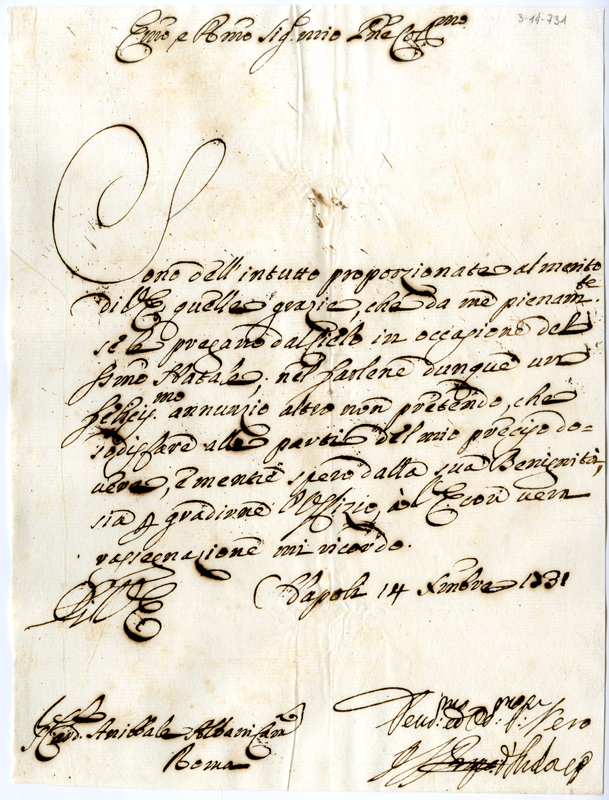 3-14-731
Emo e Rmo Sig.r mio P͞ne Coll.mo
Sono dell'intutto proporzionate al merito
di V. E. quelle grazie, che da me pienam.te
se le pregano dal Cielo in occasione del
SSmo Natale; nel farlene dunque un
felicis.mo annunzio altro non pretendo, che
sodisfare alle parti del mio preciso do=
vere, e mentre spero dalla sua Benignità,
sia p gradirne l'Offizio, à V. E. con vera
rassegnazione mi ricordo.
Di V. E.
Napoli 14 Xmbre 1731
Card. Annibale Albani
Roma
Vero